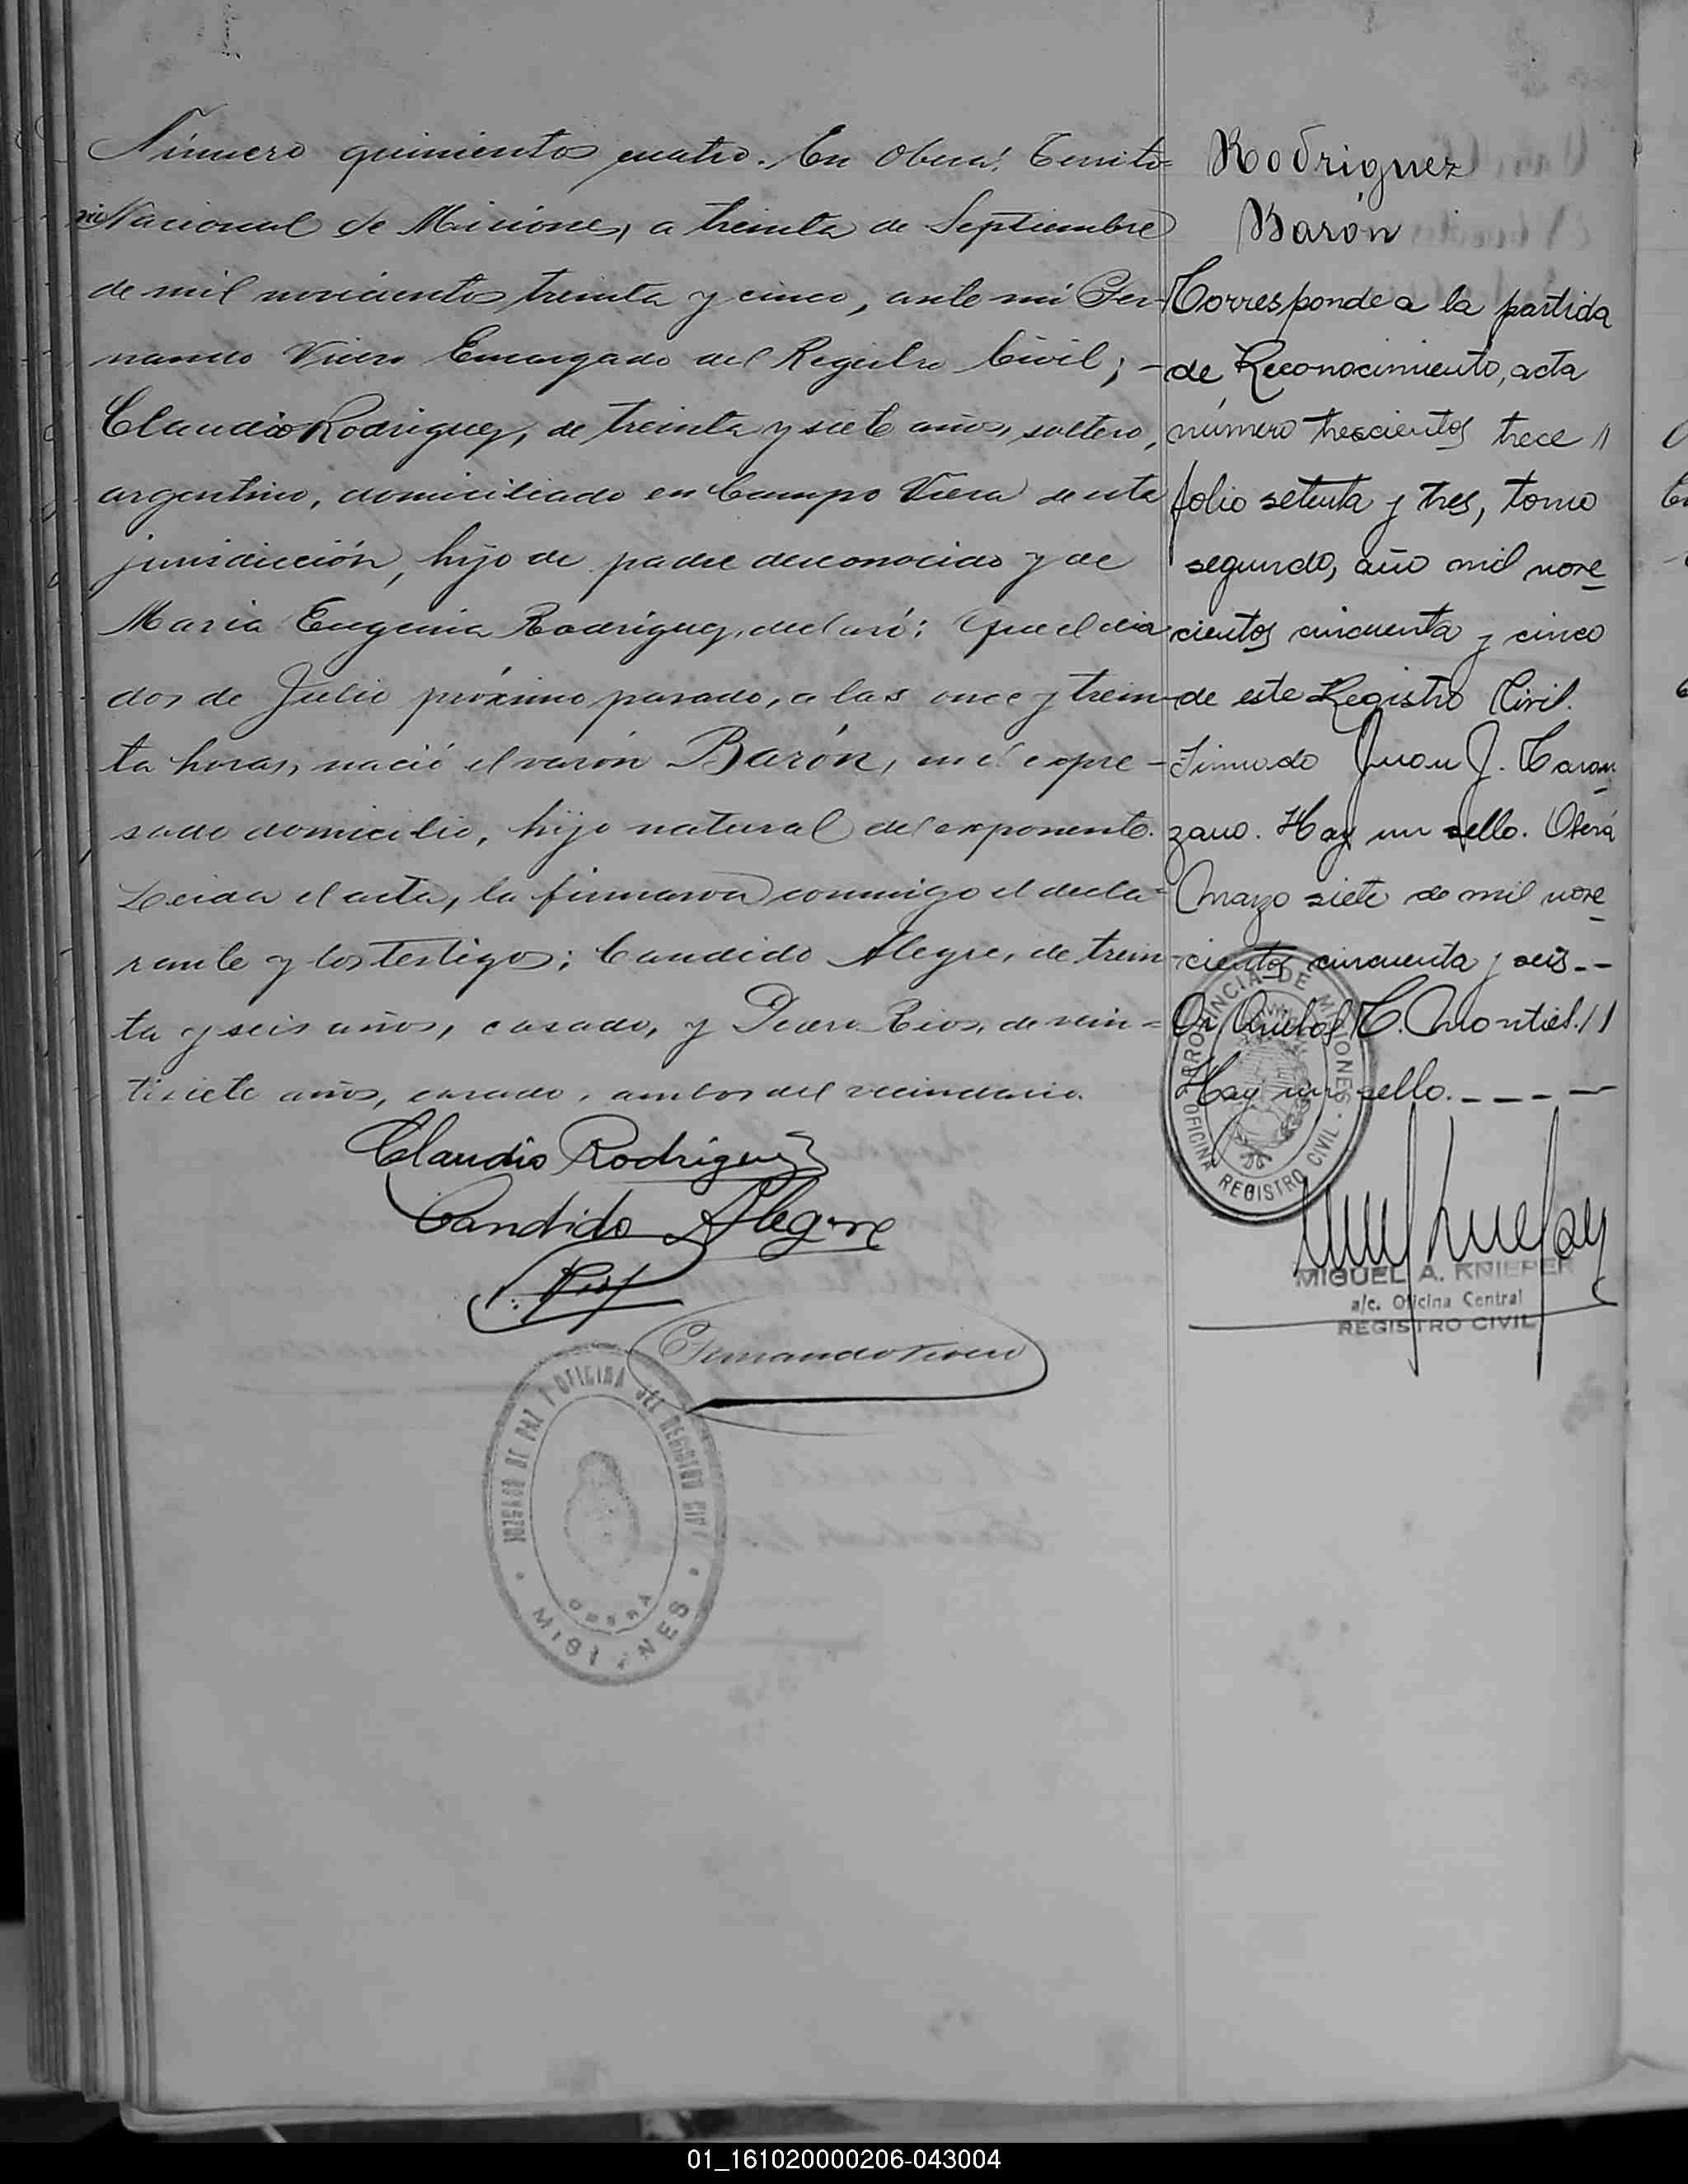 Número quinientos cuatro. En Oberá, Territo=
rio Nacional de Misiones, a treinta de Septiembre
de mil novecientos treinta y cinco, ante mí Fer-
nando Viero Encargado del Registro Civil; -
Claudio Rodriguez, de treinta y siete años, soltero,
argentino, domiciliado en Campo Viera de esta
jurisdicción, hijo de padre desconocido y de
Maria Eugenia Rodriguez, declaró: Que el día
dos de Julio próximo pasado, a las once y trein-
ta horas, nació el varón Barón, en el expre-
sado domicilio, hijo natural del exponente.
Leida el acta, la firmaron conmigo el decla=
rante y los testigos; Candido Alegre, de trein-
ta y seis años, casado, y Pedro Rios, de vein=
tisiete años, casado, ambos del vecindario.
Claudio Rodriguez
Candido Alegre
P. Rios
Fernando Viero
JUZGADO DE PAZ Y OFICINA DEL REGISTRO CIVIL
OBERA
MISIONES
Rodriguez
Barón
Corresponde a la partida
de Reconocimiento, acta
número trescientos trece //
folio setenta y tres, tomo
segundo, año mil nove
cientos cincuenta y cinco
de este Registro Civil.
Firmado Juan J. Caran
zano. Hay un sello. Oberá
Marzo siete de mil nove
cientos cincuenta y seis.--
C. Montiel.//
Hay un sello.----
PROVINCIA DE MISIONES
OFICINA REGISTRO CIVIL
MIGUEL A. KNIEPER
a/c. Oficina Central
REGISTRO CIVIL
01_161020000206-043004